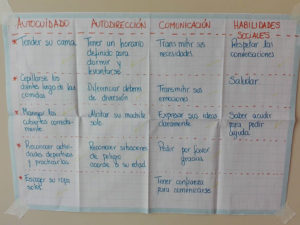 AUTOCUIDADO
* Tender su cama
* Cepillarse los
dientes luego de las
comidas
* Manejar los
cubiertos correcta-
mente
* Reconocer activi-
dades deportivas
y practicarlas
* Escoger su ropa
sola
AUTODIRECCIÓN
Tener un horario
definido para
dormir y
levantarse
Diferenciar deberes
de diversión
Alistar su mochila
solo
Reconocer situaciones
de peligro
acorde a su edad
COMUNICACIÓN
Transmitir sus
necesidades.
Transmitir sus
emociones
Expresar sus ideas
claramente
Pedir por favor
gracias
Tener confianza
para comunicarse
HABILIDADES
SOCIALES
Respetar las
conversaciones
Saludar
Saber acudir
para pedir
ayuda